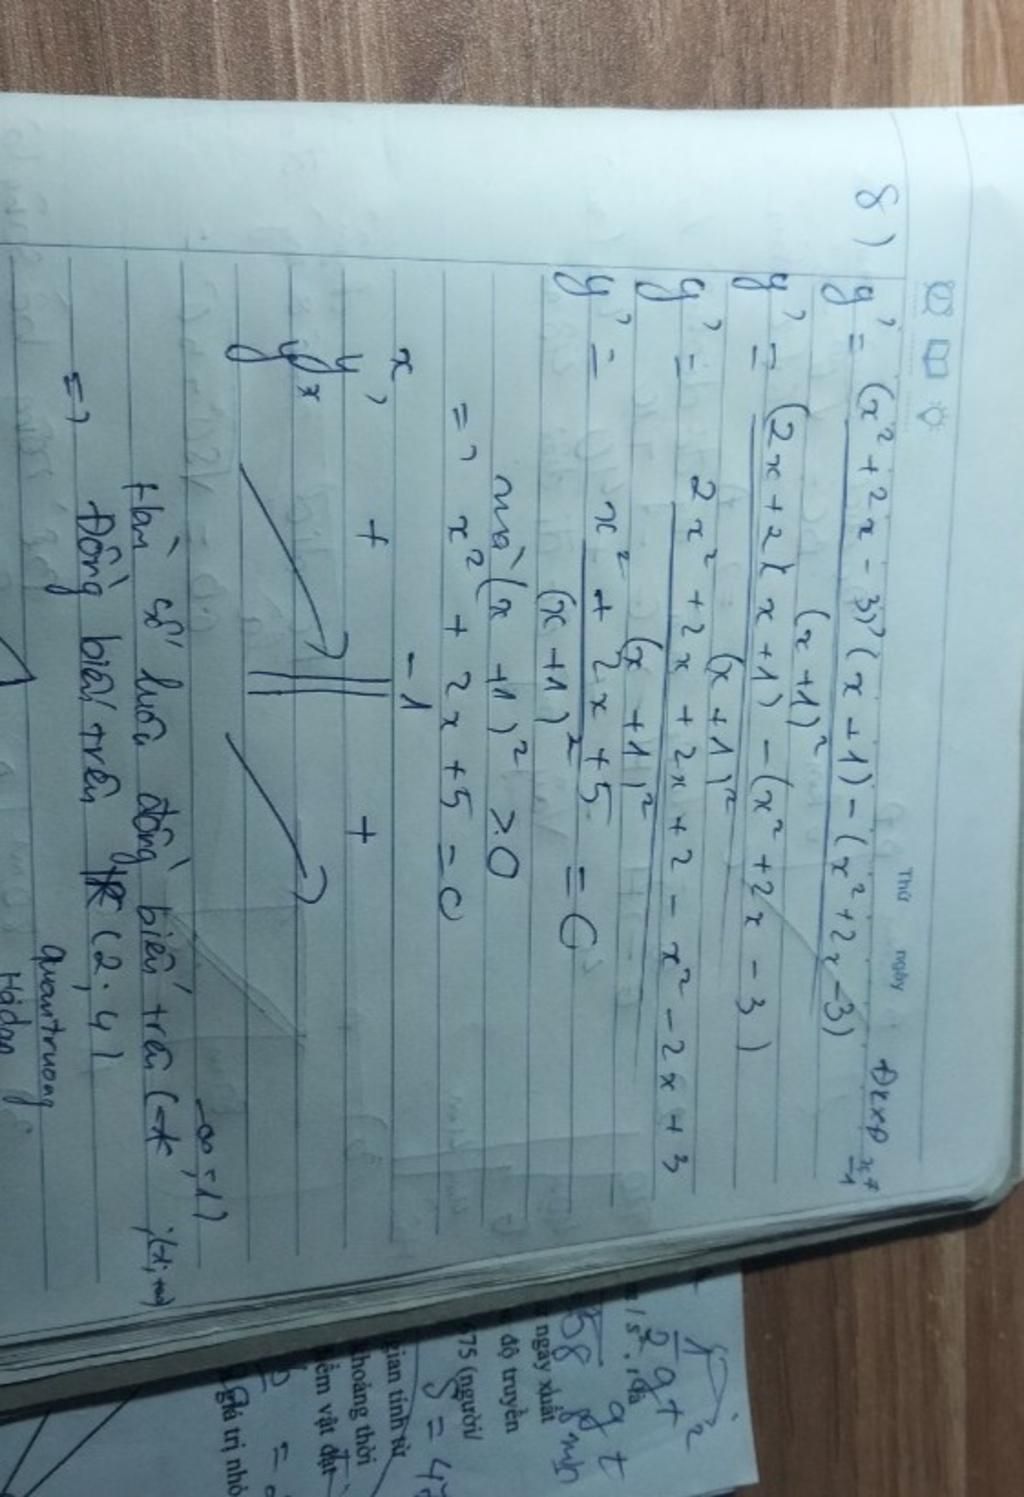 Thứ ngày
8) ĐKXĐ x ≠ -1
y' = (x² + 2x - 3)'(x + 1) - (x² + 2x - 3)
(x + 1)²
y' = (2x + 2)(x + 1) - (x² + 2x - 3)
(x + 1)²
y' = 2x² + 2x + 2x + 2 - x² - 2x + 3
(x + 1)²
y' = x² + 2x + 5 = 0
(x + 1)²
mà (x + 1)² > 0
=> x² + 2x + 5 = 0
x -1
y' + +
y
-∞; -1)
Hàm số luôn đồng biến trên ( ; (-1; +∞)
=> Đồng biến trên (2; 4)
quantruong
1/2 gt²
ngày xuất
độ truyền
675 (người/
gian tính từ
khoảng thời
iểm vật đạt
giá trị nhỏ